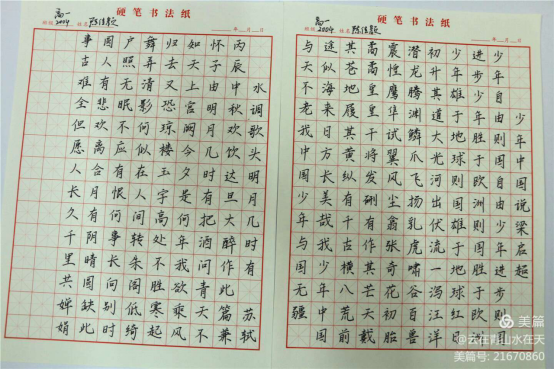 硬笔书法纸
班级 高一2004 姓名
年 月 日
水调歌头明月几时有 苏轼
丙辰中秋欢饮达旦大醉作此篇兼
怀子由明月几时有把酒问青天不
知天上宫阙今夕是何年我欲乘风
归去又恐琼楼玉宇高处不胜寒起
舞弄清影何似在人间转朱阁低绮
户照无眠不应有恨何事长向别时
圆人有悲欢离合月有阴晴圆缺此
事古难全但愿人长久千里共婵娟
硬笔书法纸
班级 高一2004 姓名
年 月 日
少年中国说梁启超
少年自由则国自由少年进步则国
进步少年胜于欧洲则国胜于欧洲
少年雄于地球则国雄于地球红日
初升其道大光河出伏流一泻汪洋
潜龙腾渊鳞爪飞扬乳虎啸谷百兽
震惶鹰隼试翼风尘翕张奇花初胎
矞矞皇皇干将发硎有作其芒天戴
其苍地履其黄纵有千古横有八荒前
途似海来日方长美哉我少年中国
与天不老壮哉我中国少年与国无疆
美篇
美篇号: 21670860